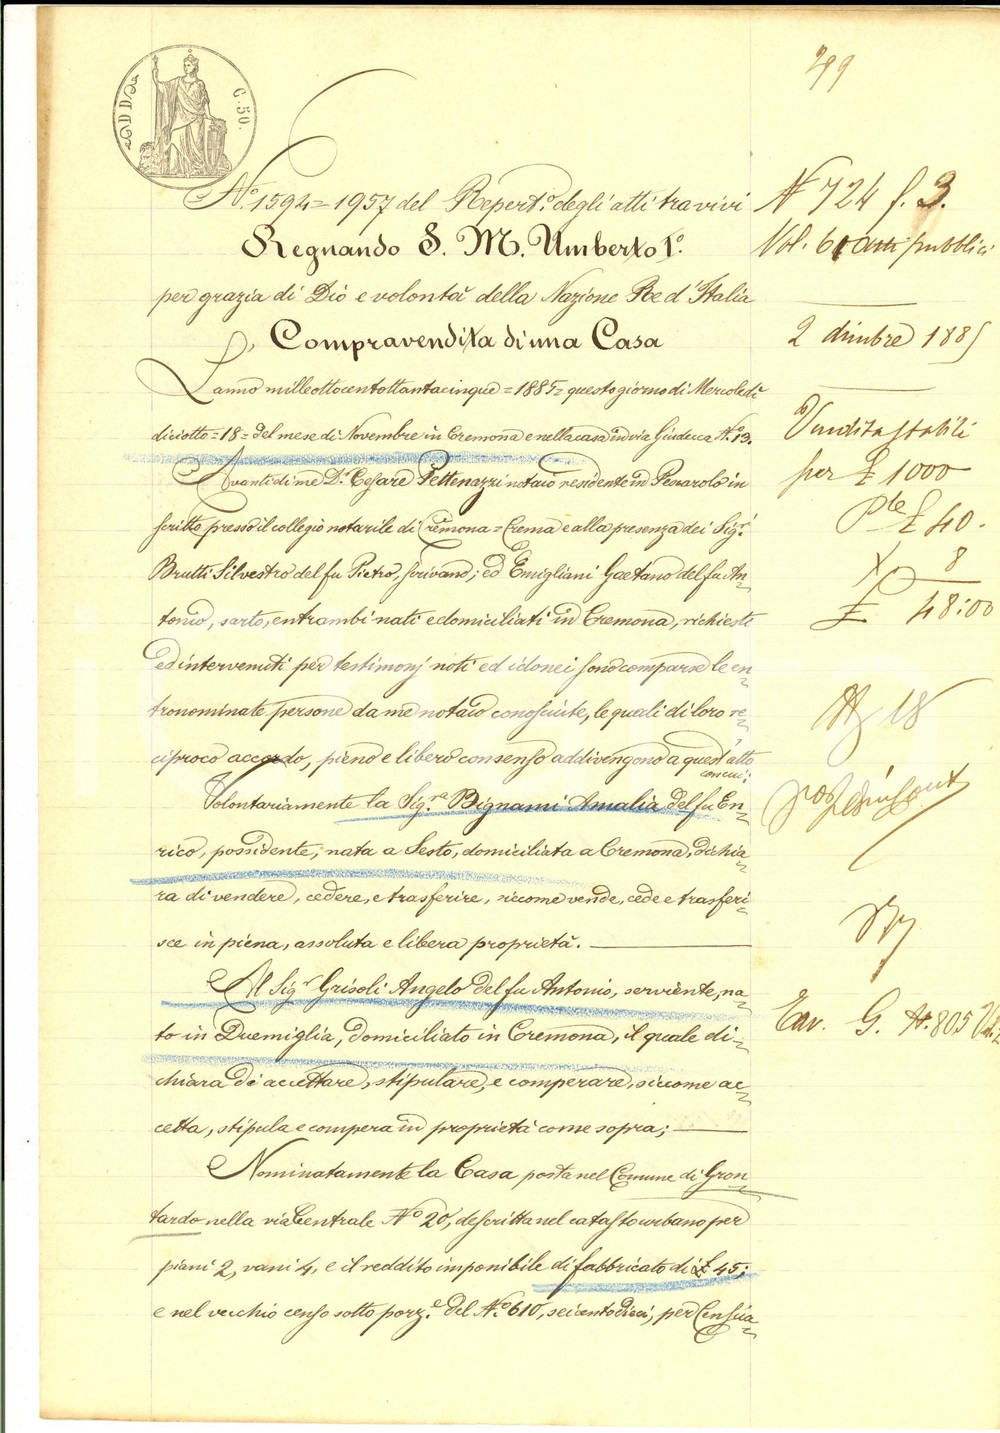 C. 50.
N.° 1594 = 1957 del Repert.° degli atti tra vivi
Regnando S. M. Umberto I.°
per grazia di Dio e volontà della Nazione Re d'Italia
Compravendita di una Casa
L'anno milleottocentottantacinque = 1885 = questo giorno di Mercoledì
diciotto = 18 = del mese di Novembre in Cremona e nella casa in via Giudecca N.° 13.
Avanti di me D.r Cesare Pettenazzi notaio residente in Pescarolo in
scritto presso il collegio notarile di Cremona = Crema e alla presenza dei Sig.ri
Brutti Silvestro del fu Pietro, scrivano; ed Emigliani Gaetano del fu An-
tonio, sarto, entrambi nati e domiciliati in Cremona, richiesti
ed intervenuti per testimonj noti ed idonei sono comparse le in-
tronominate persone da me notaio conosciute, le quali di loro re-
ciproco accordo, pieno e libero consenso addivengono a quest'atto
con cui:
Volontariamente la Sig.ra Bignami Amalia del fu En-
rico, possidente, nata a Sesto, domiciliata a Cremona, dichia-
ra di vendere, cedere, e trasferire, siccome vende, cede e trasferi-
sce in piena, assoluta e libera proprietà.
Al Sig.r Grisoli Angelo del fu Antonio, serviente, na-
to in Duemiglia, domiciliato in Cremona, il quale di-
chiara di accettare, stipulare, e comperare, siccome ac-
cetta, stipula e compera in proprietà come sopra;
Nominatamente la Casa posta nel Comune di Gron-
tardo nella via Centrale N.° 20, descritta nel catasto urbano per
piani 2, vani 4, e il reddito imponibile di fabbricato di £ 45;
e nel vecchio censo sotto porz.e del N.° 610, seicentodieci, per Censua-
N 724 f. 3.
Vol. 61 atti pubblici
2 dicembre 1885
Vendita stabili
per £ 1000
£ 40.
8
£ 48:00
18
G. N. 805